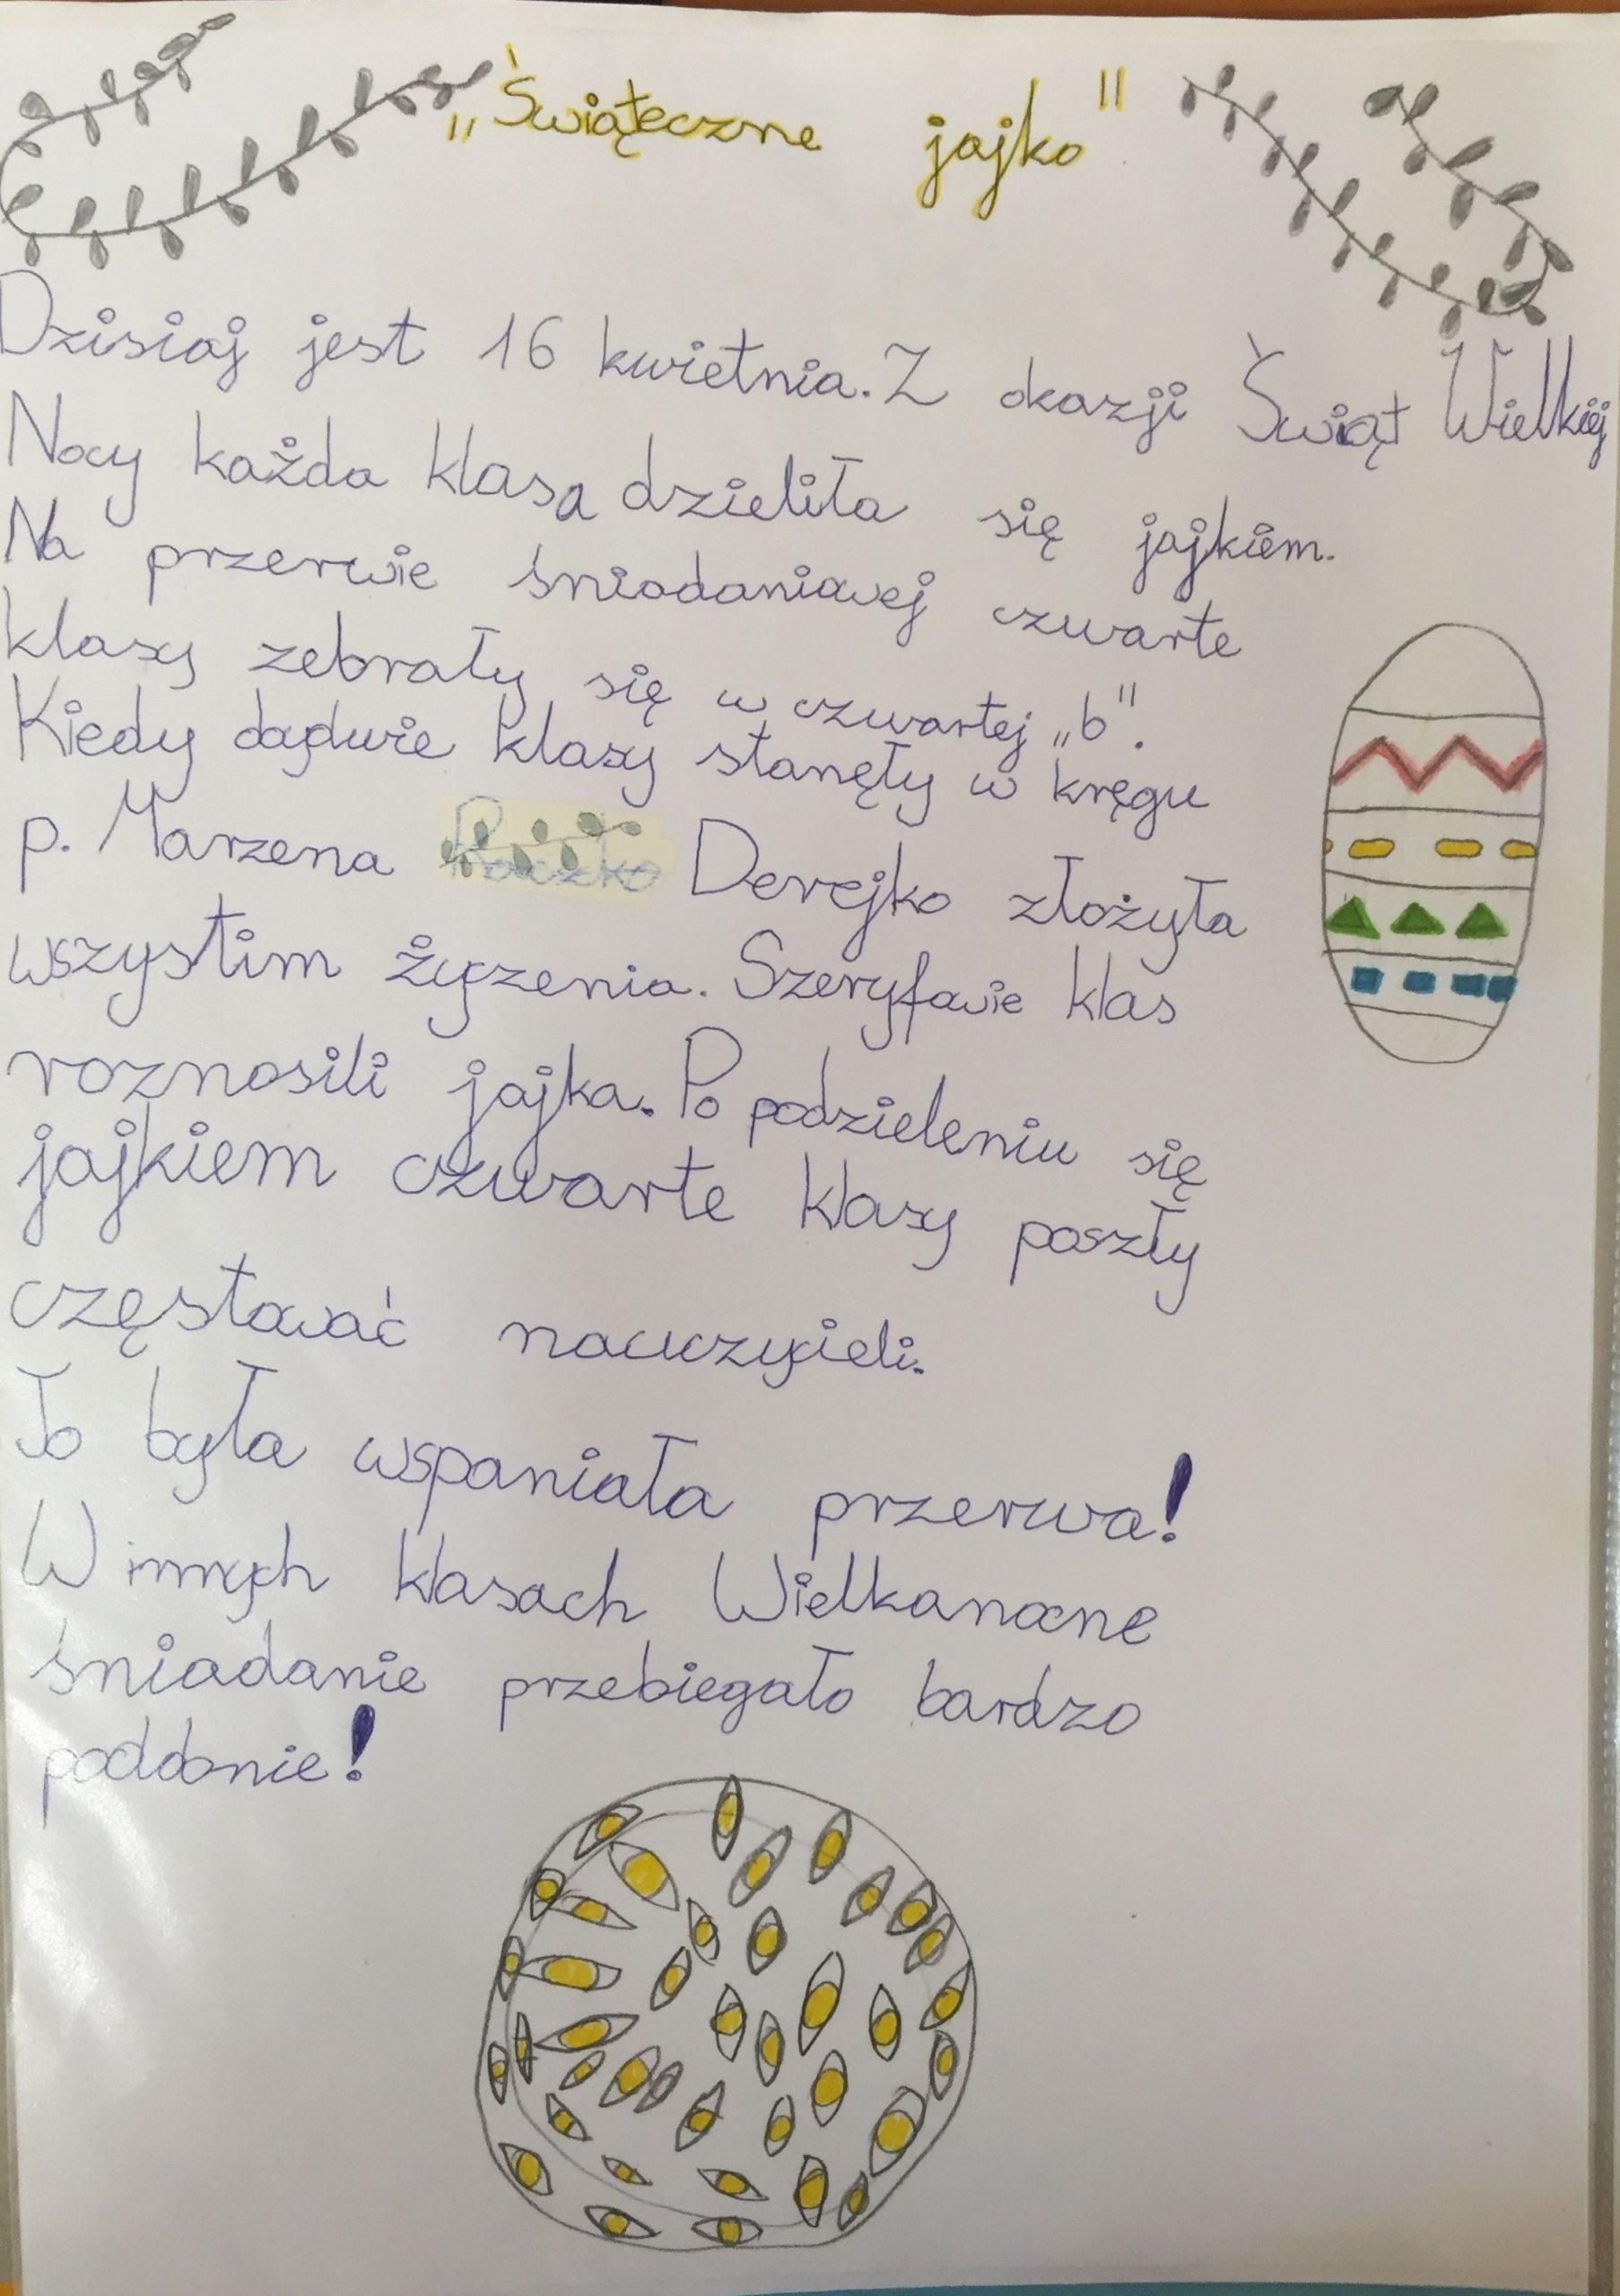 „Świąteczne jajko"
Dzisiaj jest 16 kwietnia. Z okazji Świąt Wielkiej
Nocy każda klasa dzieliła się jajkiem.
Na przerwie śniadaniowej czwarte
klasy zebrały się w czwartej „b".
Kiedy dwie klasy stanęły w kręgu
p. Marzena Derejko złożyła
wszystim życzenia. Szeryfowie klas
roznosili jajka. Po podzieleniu się
jajkiem czwarte klasy poszły
częstować nauczycieli.
To była wspaniała przerwa!
W innych klasach Wielkanocne
śniadanie przebiegało bardzo
poddonie!